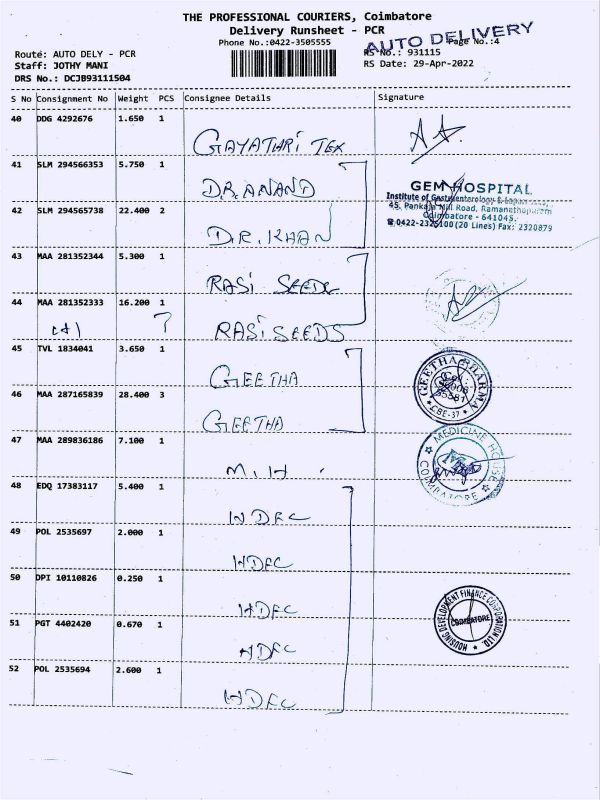 THE PROFESSIONAL COURIERS, Coimbatore
Delivery Runsheet - PCR
Phone No.:0422-3505555
AUTO DELIVERY
Page No.:4
Route: AUTO DELY - PCR
RS No.: 931115
Staff: JOTHY MANI
RS Date: 29-Apr-2022
DRS No.: DCJB93111504
S No Consignment No Weight PCS Consignee Details Signature
40 DDG 4292676 1.650 1
GAYATHRI TEX
41 SLM 294566353 5.750 1
D.R.ANAND
GEM HOSPITAL
Institute of Gastroenterology &
45, Pankaja Mill Road, Ramanathapuram
Coimbatore - 641045.
0422-2325100 (20 Lines) Fax: 2320879
42 SLM 294565738 22.400 2
D.R.KHAN
43 MAA 281352344 5.300 1
RASI SEEDS
44 MAA 281352333 16.200 1
?
RASI SEEDS
45 TVL 1834041 3.650 1
GEETHA
GEETHA PHARMA
CBE-37
46 MAA 287165839 28.400 3
GEETHA
47 MAA 289836186 7.100 1
M.H.
MEDICINE HOUSE
COIMBATORE
48 EDQ 17383117 5.400 1
HDFC
49 POL 2535697 2.000 1
HDFC
50 DPI 10110826 0.250 1
HDFC
HOUSING DEVELOPMENT FINANCE CORPORATION LTD.
COIMBATORE
51 PGT 4402420 0.670 1
HDFC
52 POL 2535694 2.600 1
HDFC